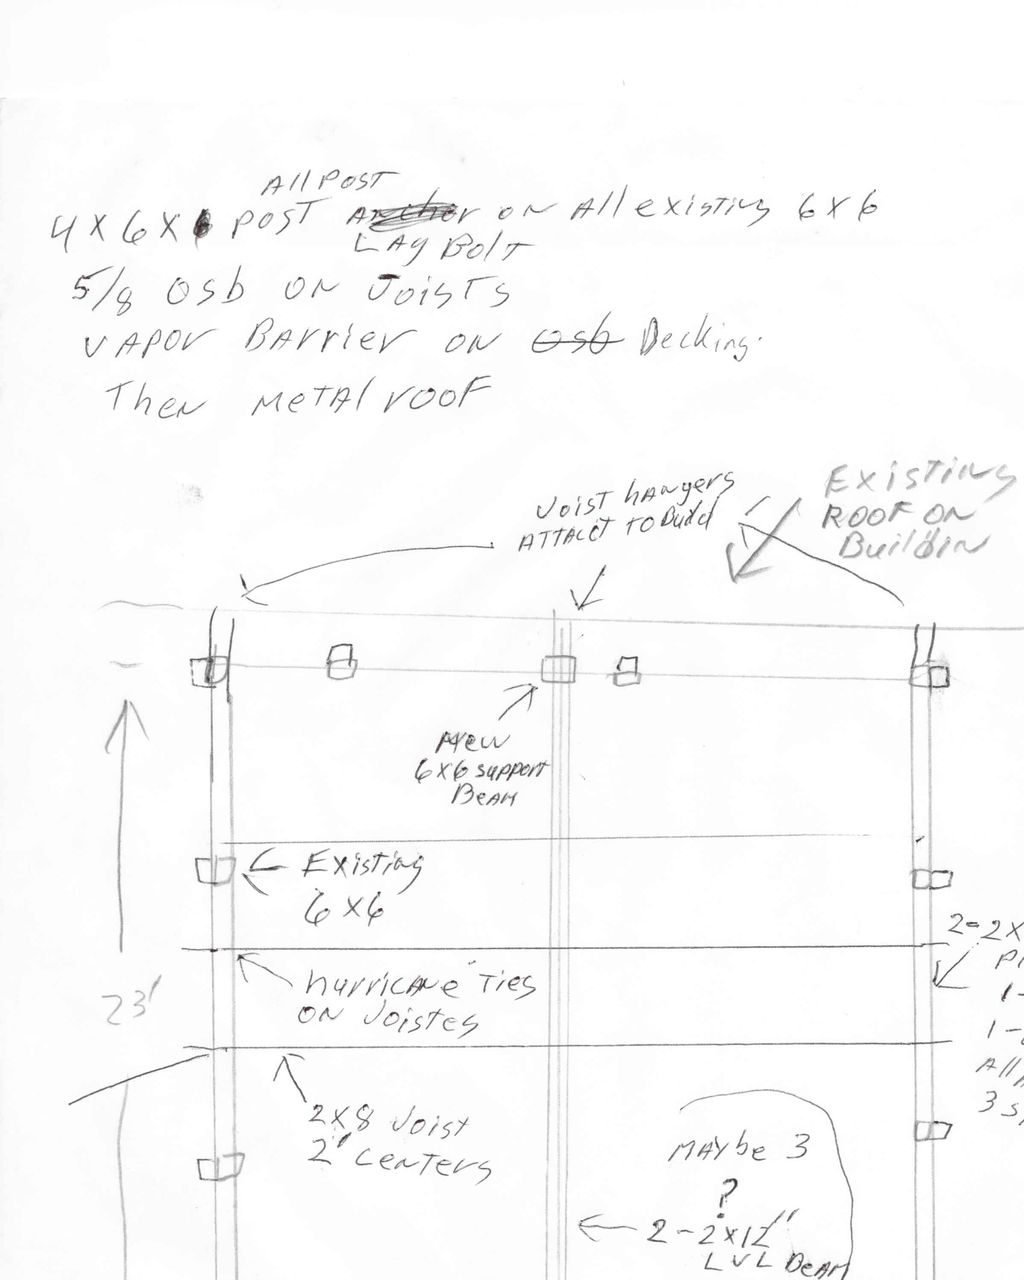 All POST
4 x 6 x 6 POST ON All existing 6x6
LAG BOLT
5/8 OSb ON JOISTS
VAPOR BARRIER ON OSb Decking.
THEN METAL ROOF
JOIST hANgers
ATTACT TO Build
EXISTING
ROOF ON
BuildiN
NEW
6x6 SUPPORT
BEAM
EXISTING
6x6
23'
hurricANE TIES
ON JOISTES
2x8 JOIST
2' CENTERS
2-2x
1-
1-
All
3 s
MAYbe 3
?
2-2x12"
LVL BEAM